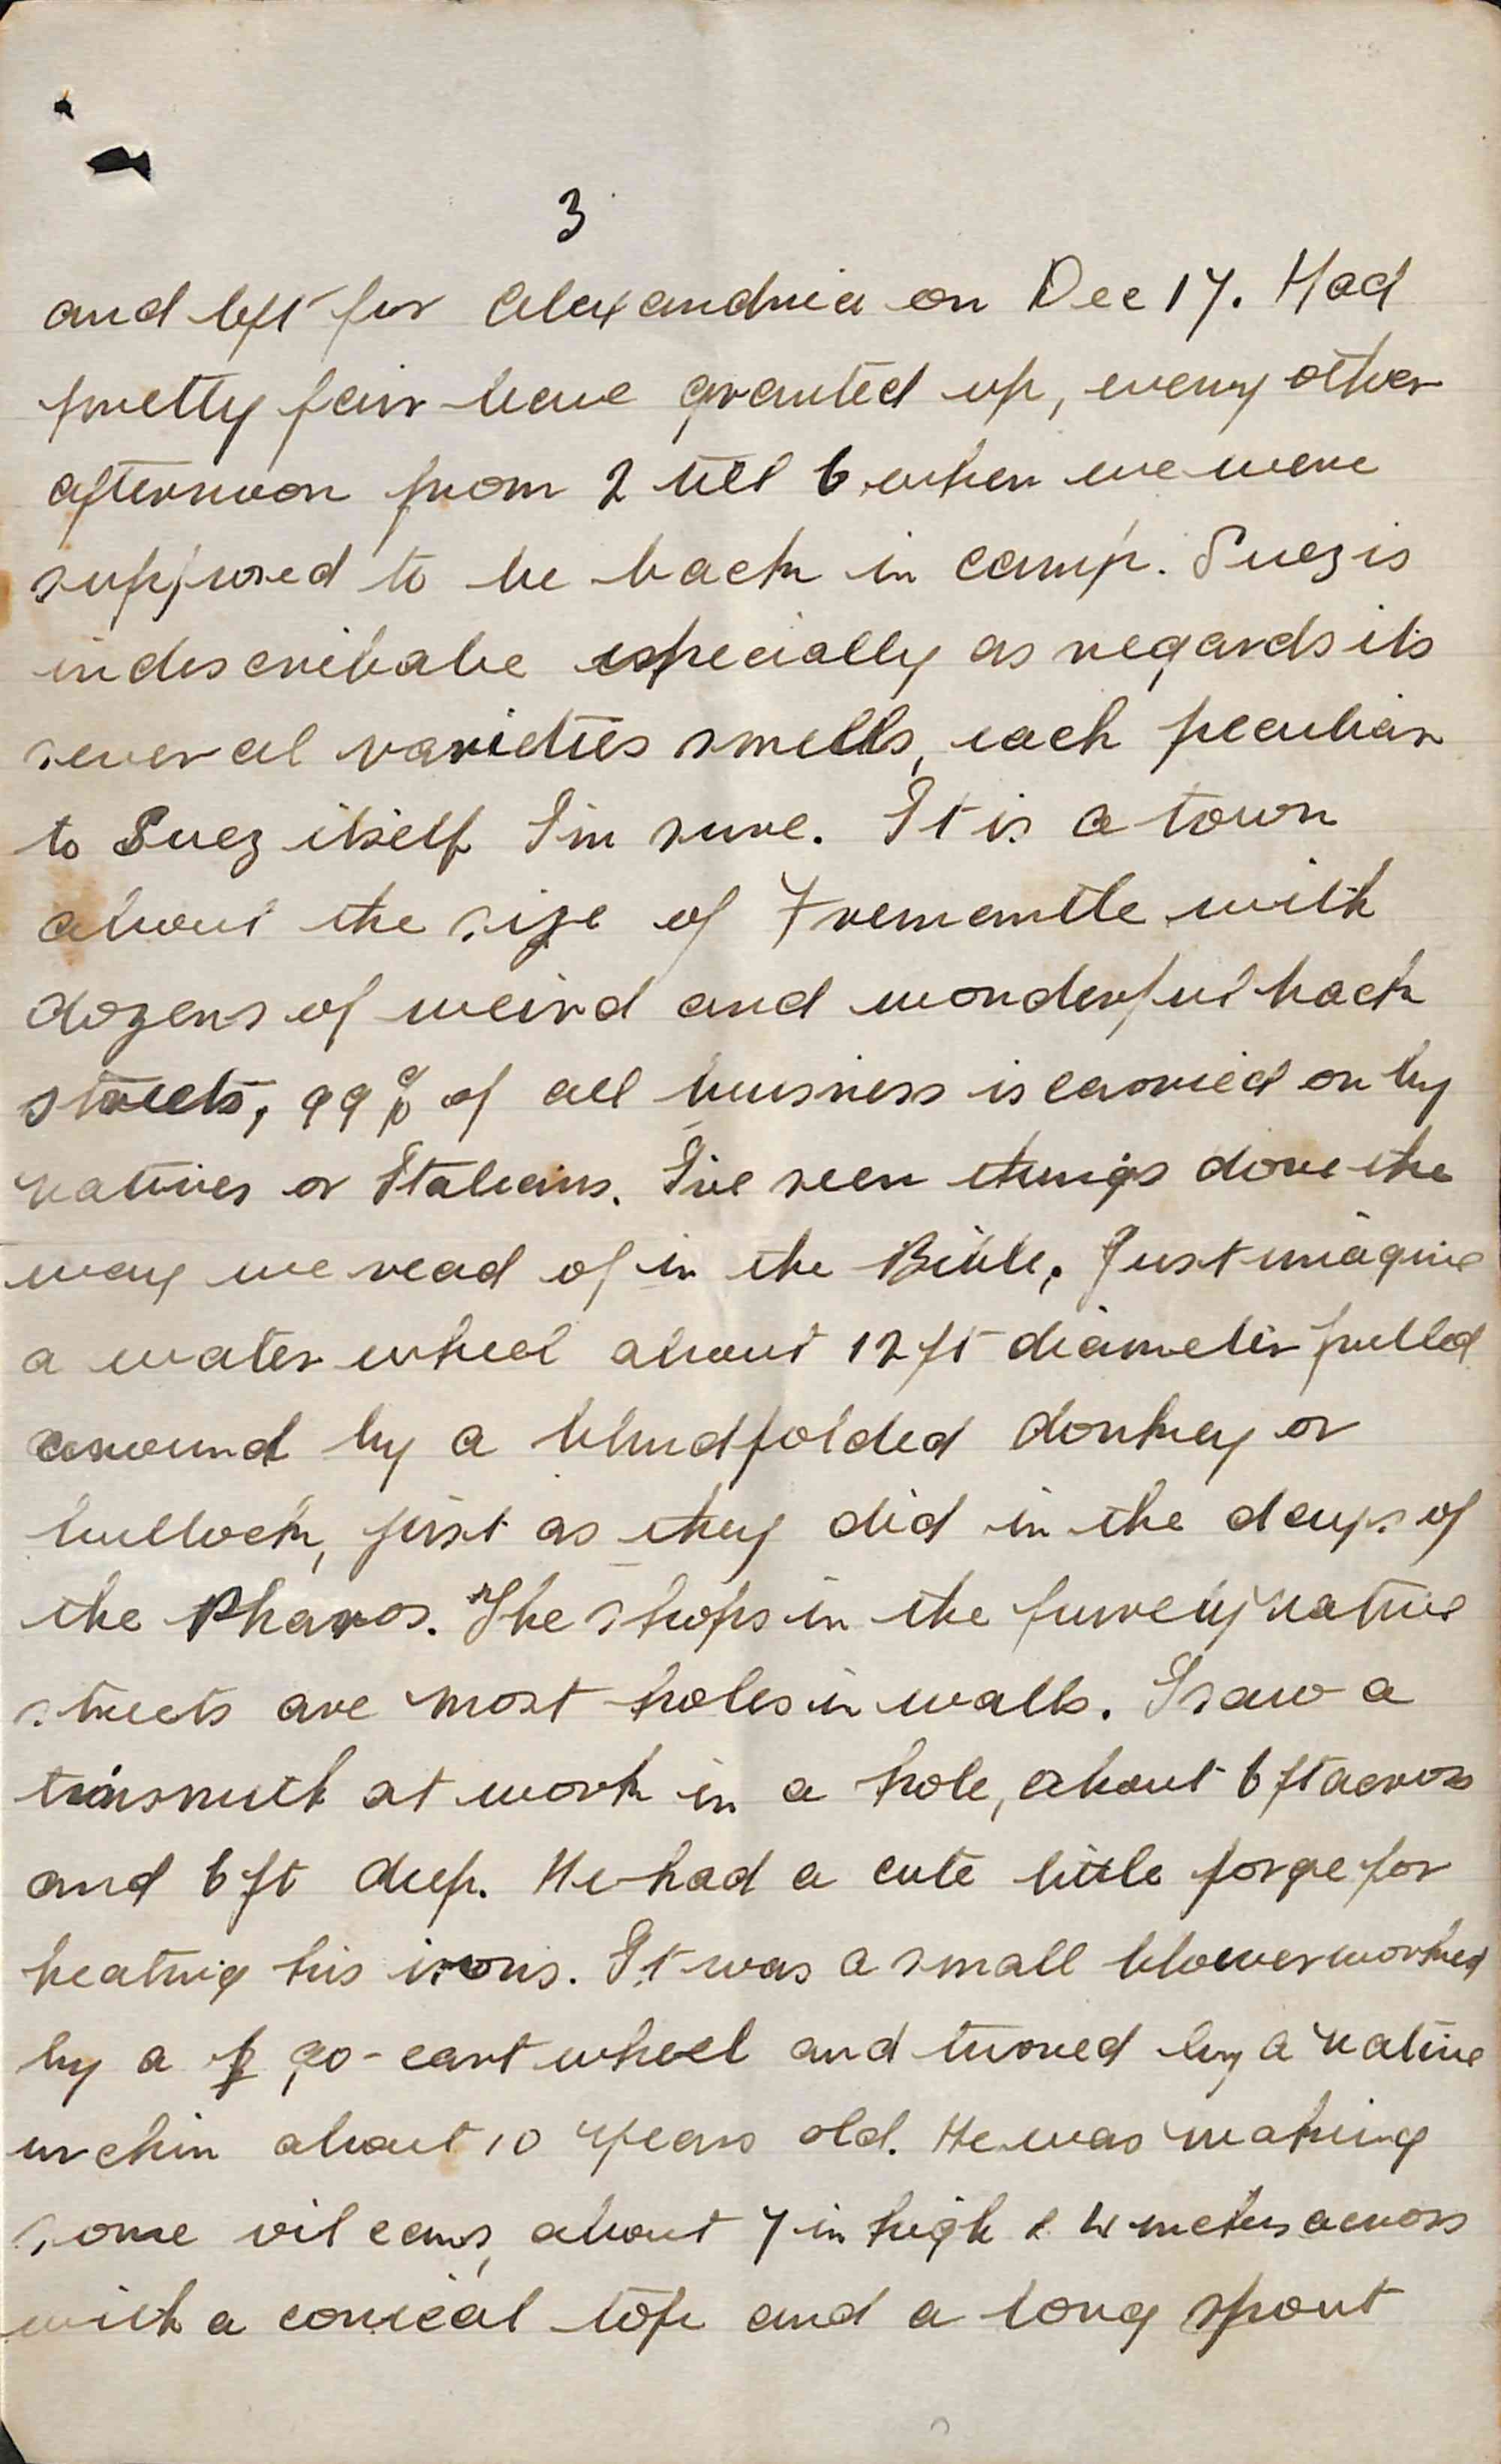 3
and left for Alexandria on Dec 17. Had
pretty fair leave granted up, every other
afternoon from 2 till 6 when we were
supposed to be back in camp. Suez is
indescribabe especially as regards its
several varieties smells, each peculiar
to Suez itself I'm sure. It is a town
about the size of Fremantle with
dozens of weird and wonderful back
streets, 99% of all business is carried on by
natives or Italians. I've seen things done the
way we read of in the Bible. Just imagine
a water wheel about 12 ft diameter pulled
around by a blindfolded donkey or
bullock, just as they did in the days of
the Pharos. The shops in the purely native
streets are most holes in walls. I saw a
tinsmith at work in a hole, about 6 ft across
and 6 ft deep. He had a cute little forge for
heating his irons. It was a small blower worked
by a go-cart wheel and turned by a native
urchin about 10 years old. He was making
some oil cans, about 7 in high & 4 inches across
with a conical top and a long spout